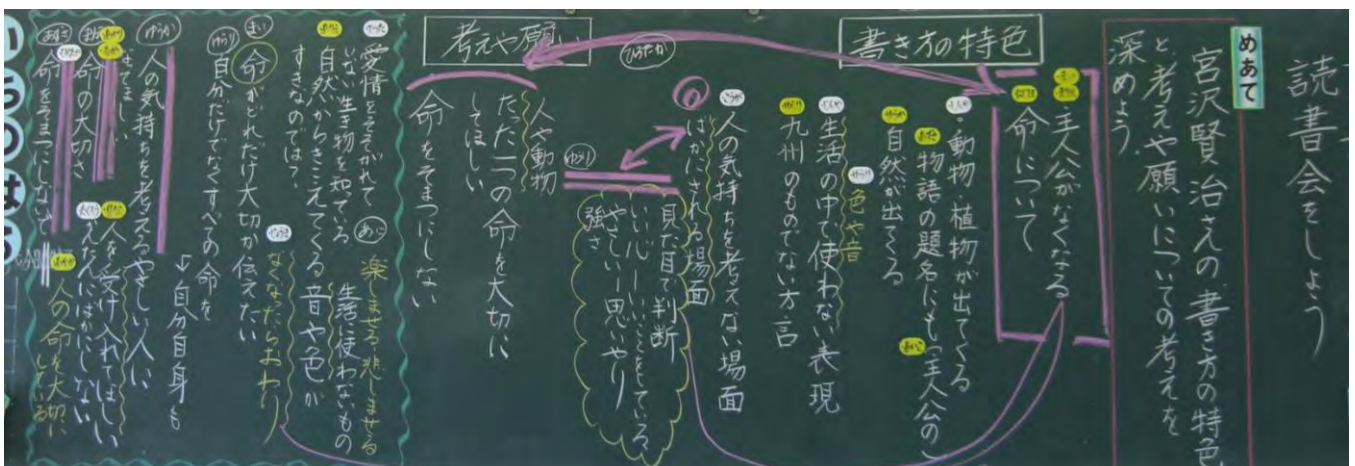 読書会をしよう
めあて
宮沢賢治さんの書き方の特色
と考えや願いについての考えを
深めよう。
書き方の特色
主人公がなくなる
命について
・動物、植物が出てくる
物語の題名にも(主人公の)
自然が出てくる
色や音
生活の中で使わない表現
九州のものでない方言
人の気持ちを考えない場面
ばかにされる場面
見た目で判断
いい心ーいいことをしている
やさしい思いやり
強さ
ひろたか
考えや願い
人や動物
たった一つの命を大切に
してほしい
命をそまつにしない
愛情をそそがれて
いない生き物を知っている
自然からきこえてくる音や色が
すきなのでは?
楽しませる、悲しませる
生活に使わないもの
まい
命がどれだけ大切か伝えたい
なくなったらおわり
ゆうり
自分だけでなくすべての命を
↓自分自身も
ゆうか
人の気持ちを考えるやさしい人に
なってほしい
人を受け入れてほしい
命の大切さ
へんだんにばかにしない
あずさ
命をそまつにしないで
人の命を大切に
している